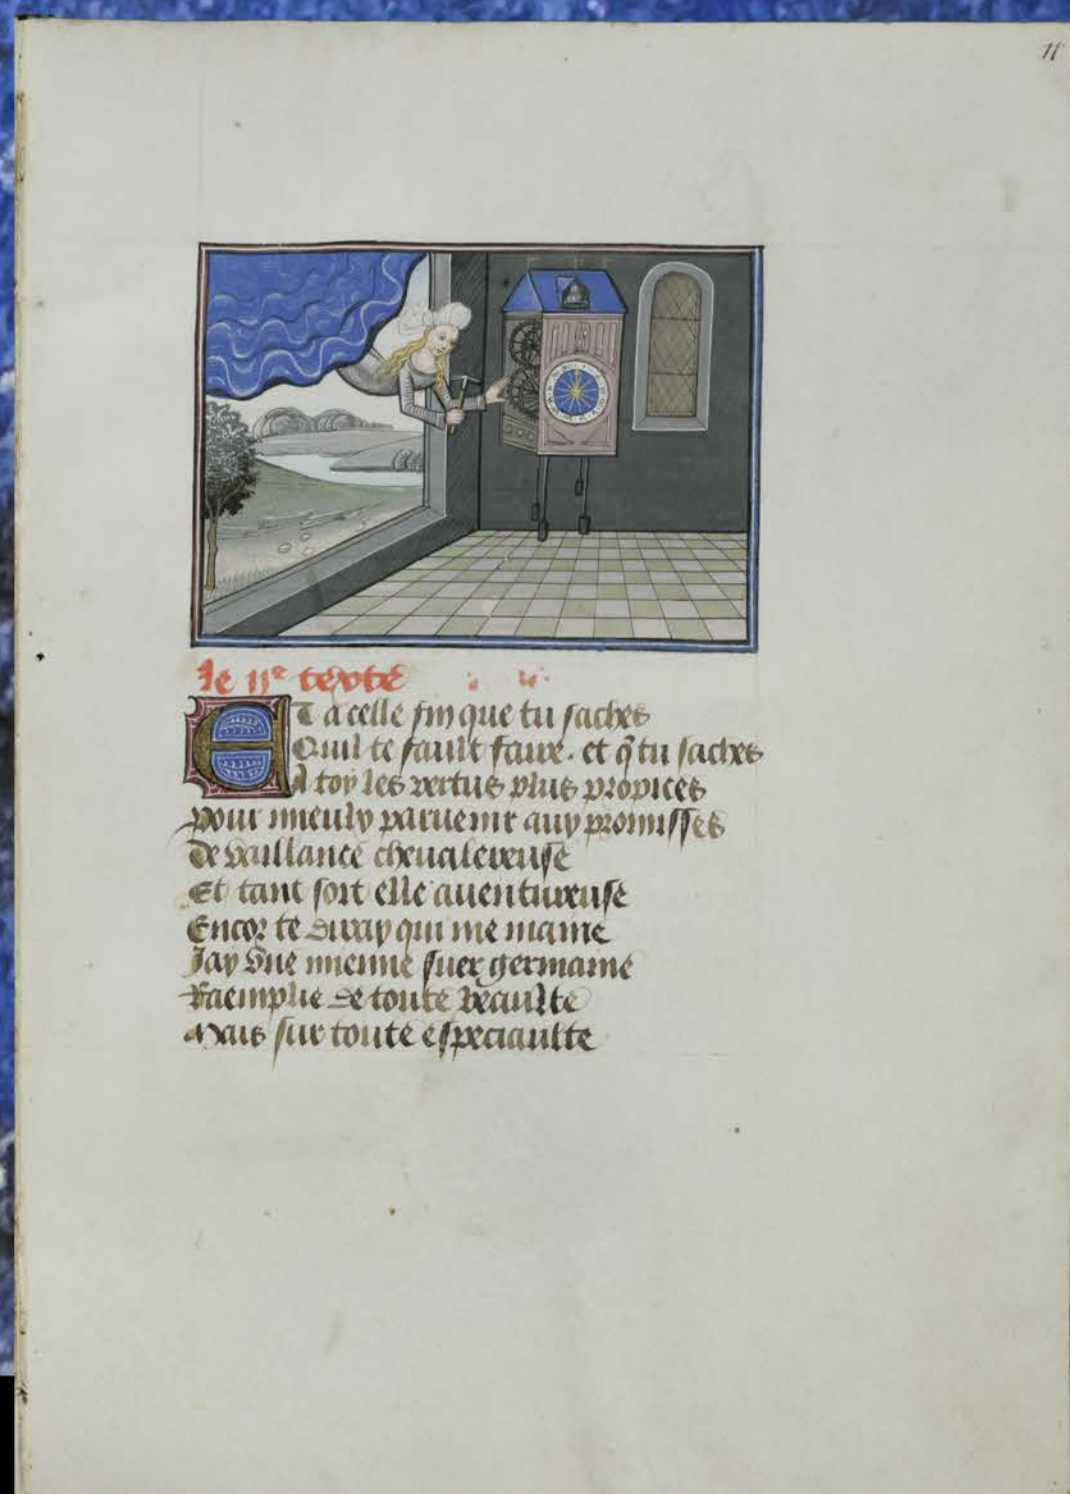 11
Le iie texte
Et a celle fin que tu saches
Quil te fault faire. et q̃ tu saches
A toy les vertus plus propices
Pour mieulx paruenir aux promisses
De vaillance cheualereuse
Et tant soit elle auentureuse
Encor te diray qui me maine
Jay vne mienne suer germaine
Raemplie de toute beaulte
Mais sur toute especiaulte